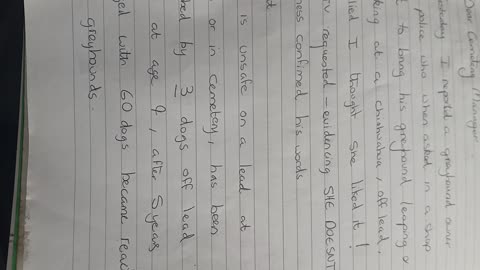 Dear Cemetery Manager
I reported a greyhound owner
police who when asked in a shop
to bring his greyhound leaping
king at a chihuahua, off lead,
lied I thought she liked it!
TV requested - evidencing SHE DOESNT
ness confirmed his words
is unsafe on a lead at
or in cemetery, has been
ked by 3 dogs off lead
at age 9, after 5 years
ged with 60 dogs became reac
greyhounds.